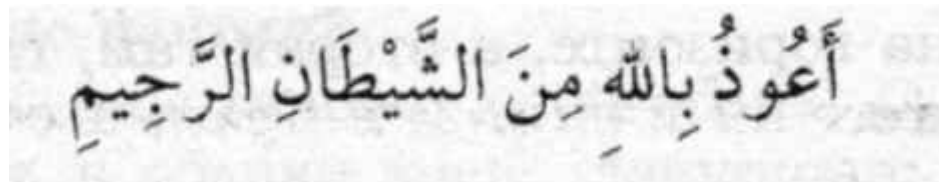 أَعُوذُ بِاللهِ مِنَ الشَّيْطَانِ الرَّجِيمِ